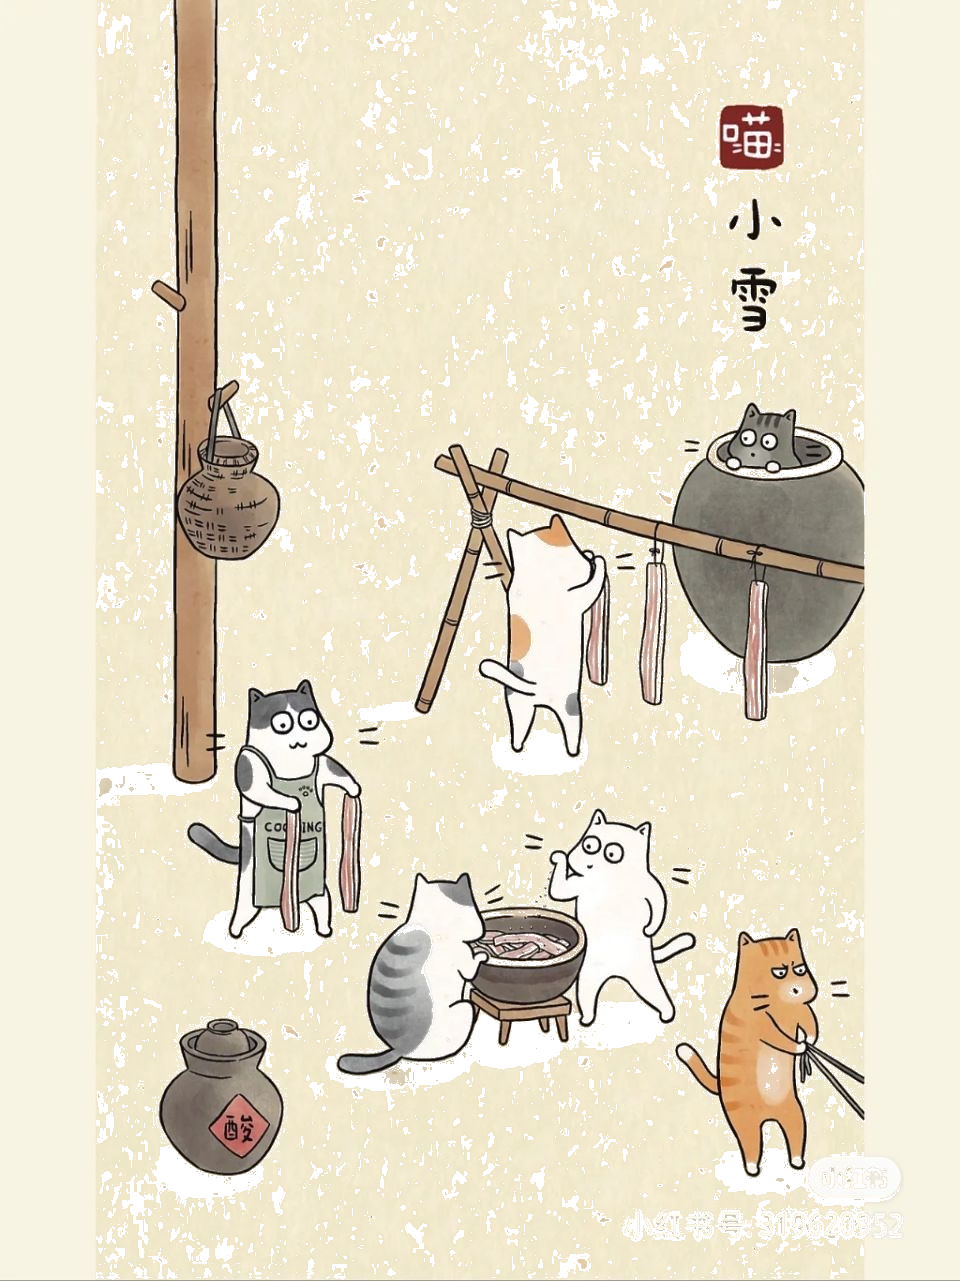 喵
小
雪
COOKING
酸
小红书
小红书号:319620952